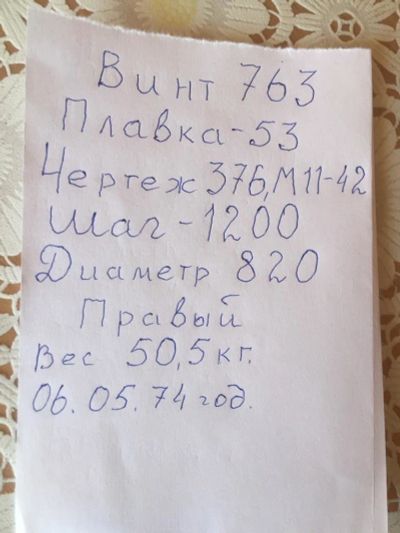 Винт 763
Плавка-53
Чертеж 376,М11-42
Шаг-1200
Диаметр 820
Правый
Вес 50,5кг.
06.05.74 год.